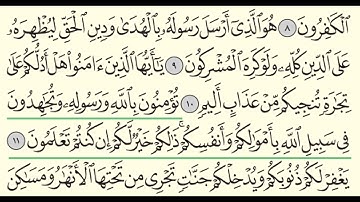 ٱلْكَٰفِرُونَ ٨ هُوَ ٱلَّذِىٓ أَرْسَلَ رَسُولَهُۥ بِٱلْهُدَىٰ وَدِينِ ٱلْحَقِّ لِيُظْهِرَهُۥ
عَلَى ٱلدِّينِ كُلِّهِۦ وَلَوْ كَرِهَ ٱلْمُشْرِكُونَ ٩ يَٰٓأَيُّهَا ٱلَّذِينَ ءَامَنُوا۟ هَلْ أَدُلُّكُمْ عَلَىٰ
تِجَٰرَةٍ تُنجِيكُم مِّنْ عَذَابٍ أَلِيمٍ ١٠ تُؤْمِنُونَ بِٱللَّهِ وَرَسُولِهِۦ وَتُجَٰهِدُونَ
فِى سَبِيلِ ٱللَّهِ بِأَمْوَٰلِكُمْ وَأَنفُسِكُمْ ۚ ذَٰلِكُمْ خَيْرٌ لَّكُمْ إِن كُنتُمْ تَعْلَمُونَ ١١
يَغْفِرْ لَكُمْ ذُنُوبَكُمْ وَيُدْخِلْكُمْ جَنَّٰتٍ تَجْرِى مِن تَحْتِهَا ٱلْأَنْهَٰرُ وَمَسَٰكِنَ